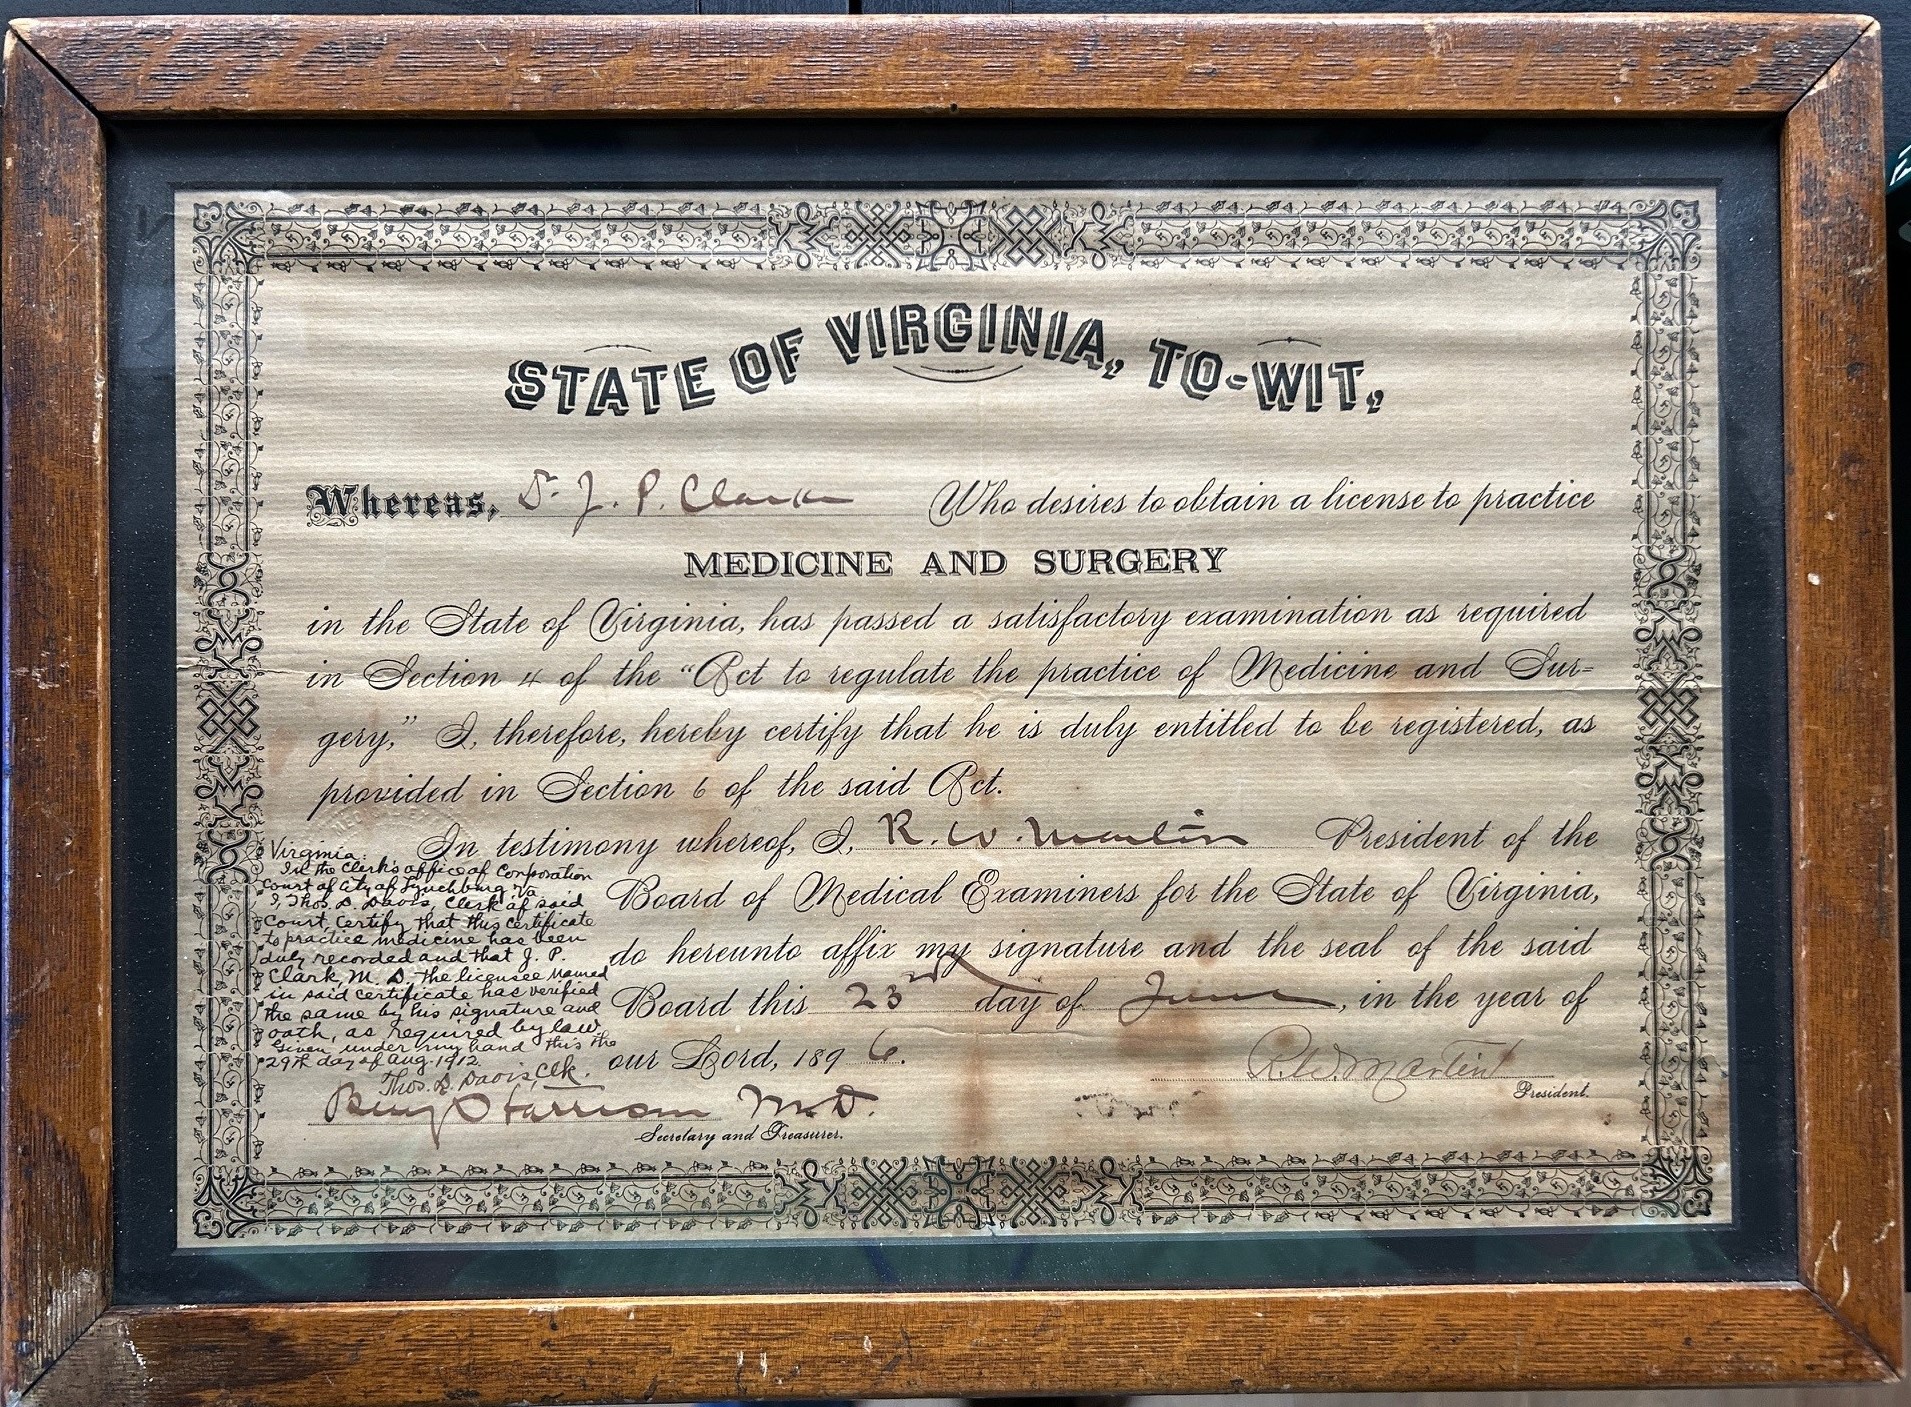 STATE OF VIRGINIA, TO-WIT,
Whereas, Dr. J. P. Clark Who desires to obtain a license to practice
MEDICINE AND SURGERY
in the State of Virginia, has passed a satisfactory examination as required
in Section 4 of the "Act to regulate the practice of Medicine and Sur=
gery," I, therefore, hereby certify that he is duly entitled to be registered, as
provided in Section 6 of the said Act.
In testimony whereof, I, R. W. Martin President of the
Board of Medical Examiners for the State of Virginia,
do hereunto affix my signature and the seal of the said
Board this 23rd day of June, in the year of
our Lord, 1896.
R. W. Martin
President.
Virginia:
In the Clerk's office of Corporation
Court of City of Lynchburg Va
I, Thos. D. Davis, Clerk of said
Court, certify that this certificate
to practice medicine has been
duly recorded and that J. P.
Clark, M. D. the licensee named
in said certificate has verified
the same by his signature and
oath, as required by law.
Given under my hand this the
29th day of Aug. 1912.
Thos. D. Davis, Clk.
Benj Harrison M.D.
Secretary and Treasurer.